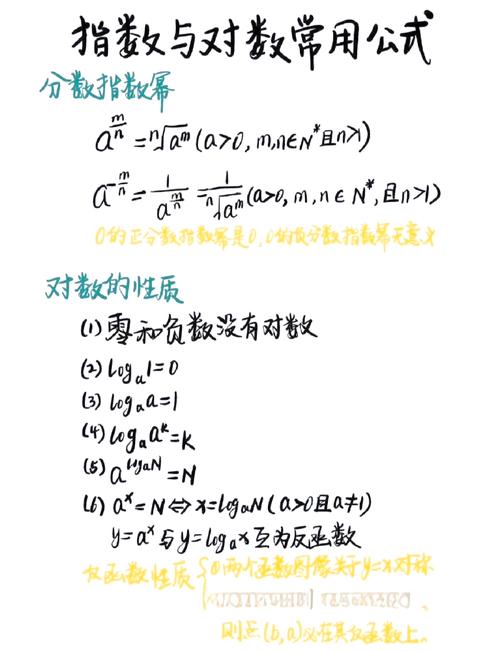 指数与对数常用公式
分数指数幂
a^{\frac{m}{n}} = \sqrt[n]{a^m} (a>0, m,n∈N*且n>1)
a^{-\frac{m}{n}} = \frac{1}{a^{\frac{m}{n}}} = \frac{1}{\sqrt[n]{a^m}} (a>0, m,n∈N*,且n>1)
0的正分数指数幂是0,0的负分数指数幂无意义
对数的性质
(1) 零和负数没有对数
(2) log_a 1=0
(3) log_a a=1
(4) log_a a^k=k
(5) a^{log_a N}=N
(6) a^x=N⇔x=log_a N (a>0且a≠1)
y=a^x与y=log_a x互为反函数
反函数性质{①两个函数图像关于y=x对称
则点(b,a)必在其反函数上。